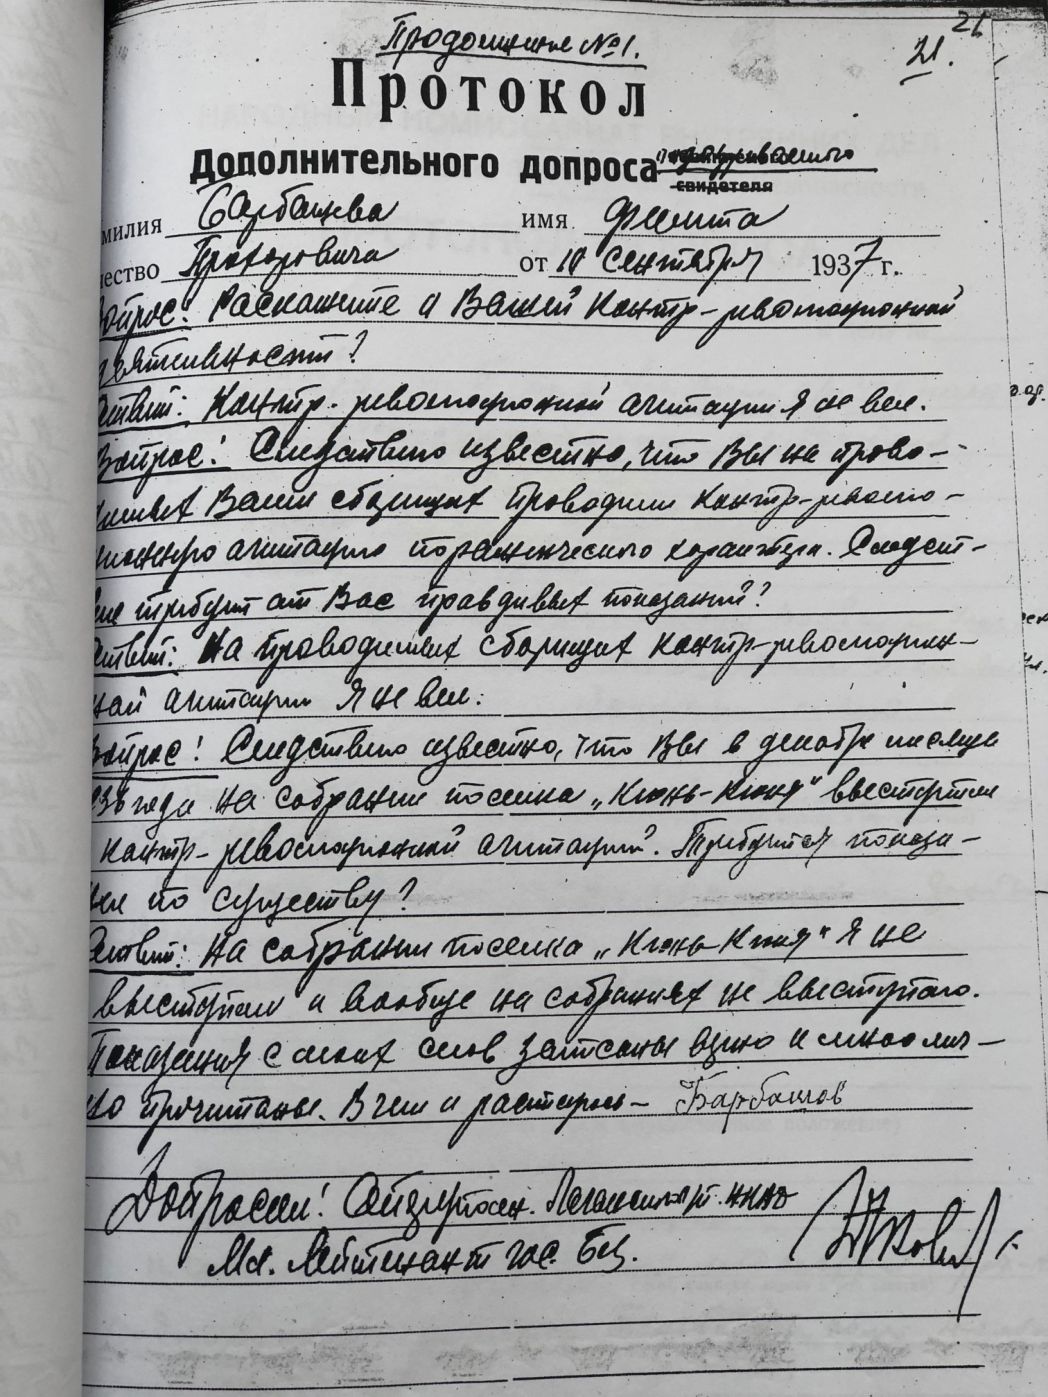 21
21.
Продолжение №1.
Протокол
Дополнительного допроса обвиняемого
свидетеля
милия Барбашова имя Филиппа
чество Прохоровича от 10 сентября 1937 г.
Вопрос: Расскажите о Вашей контр-революционной
деятельности?
Ответ: Контр-революционной агитации я не вел.
Вопрос: Следствию известно, что Вы на прово-
димых Вами сборищах проводили контр-револю-
ционную агитацию пораженческого характера. Следст-
вие требует от Вас правдивых показаний?
Ответ: На проводимых сборищах контр-революцион-
ной агитации я не вел.
Вопрос: Следствию известно, что Вы в декабре месяце
1936 года на собрании поселка „Кюнь-Кюня" выступали
контр-революционной агитацией. Требуются показа-
ния по существу?
Ответ: На собрании поселка „Кюнь-Кюня" я не
выступал и вообще на собраниях не выступаю.
Показания с моих слов записаны верно и мною лич-
но прочитаны. В чем и распишусь - Барбашов
Допросил:
Мл. Лейтенант гос. Без.